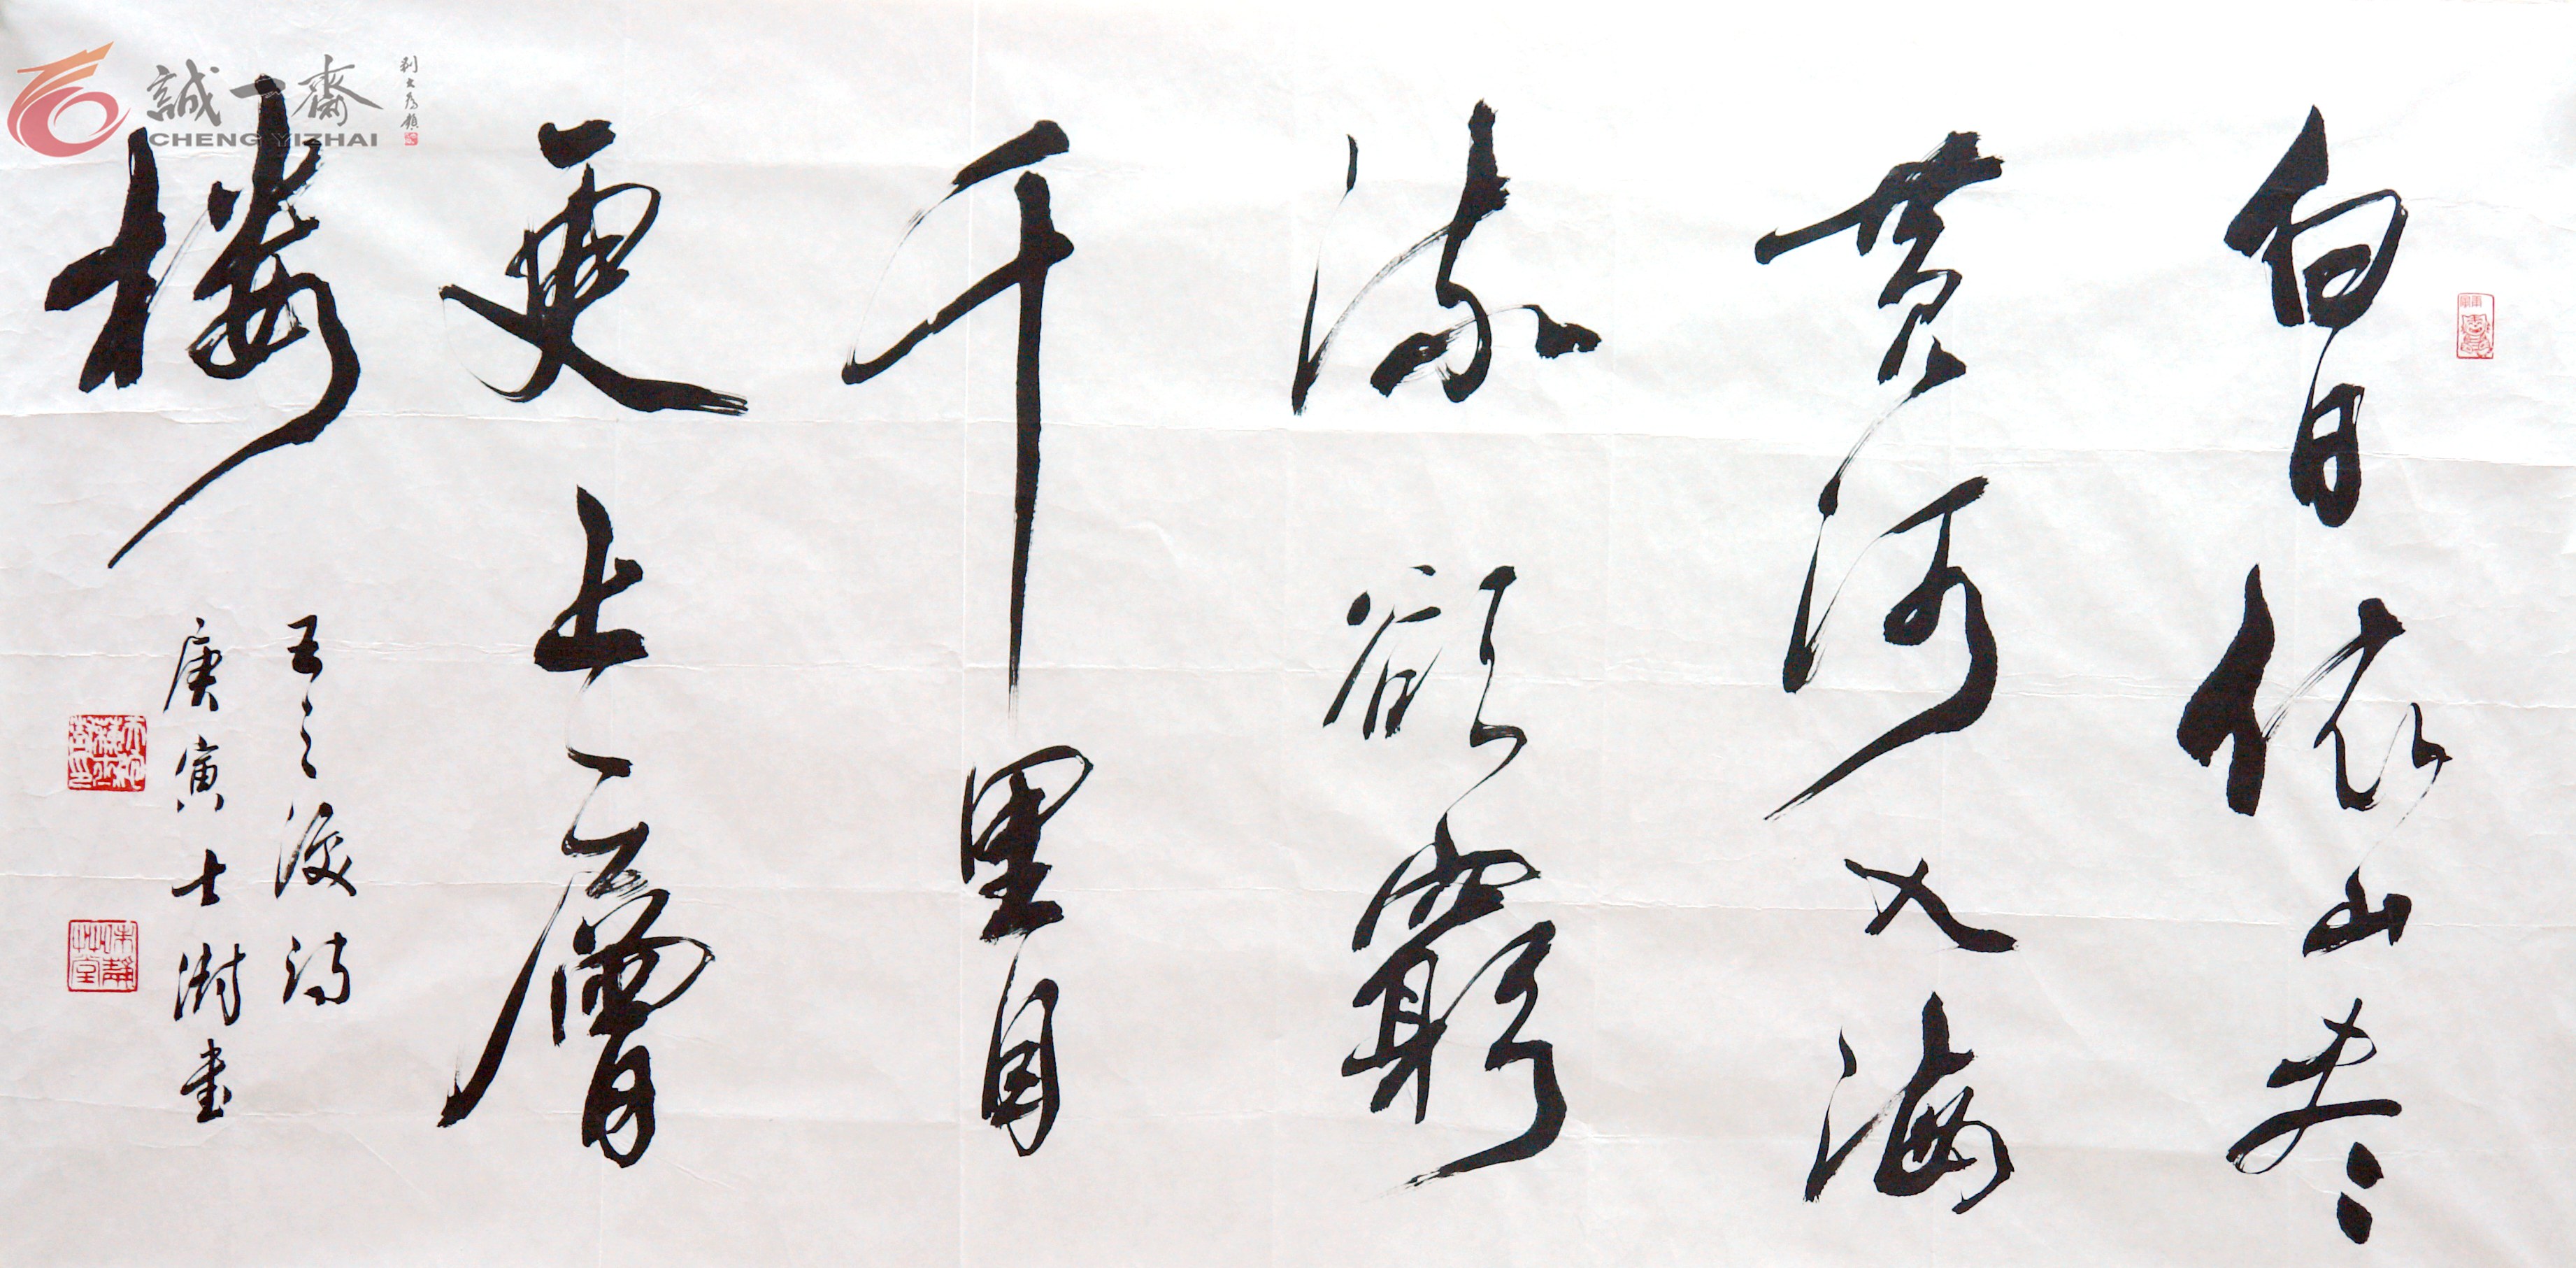 白日依山尽
黄河入海
流欲窮
千里目
更上一層
楼
王之涣诗
庚寅士澍书
誠一齋
CHENG YIZHAI
刘大为题